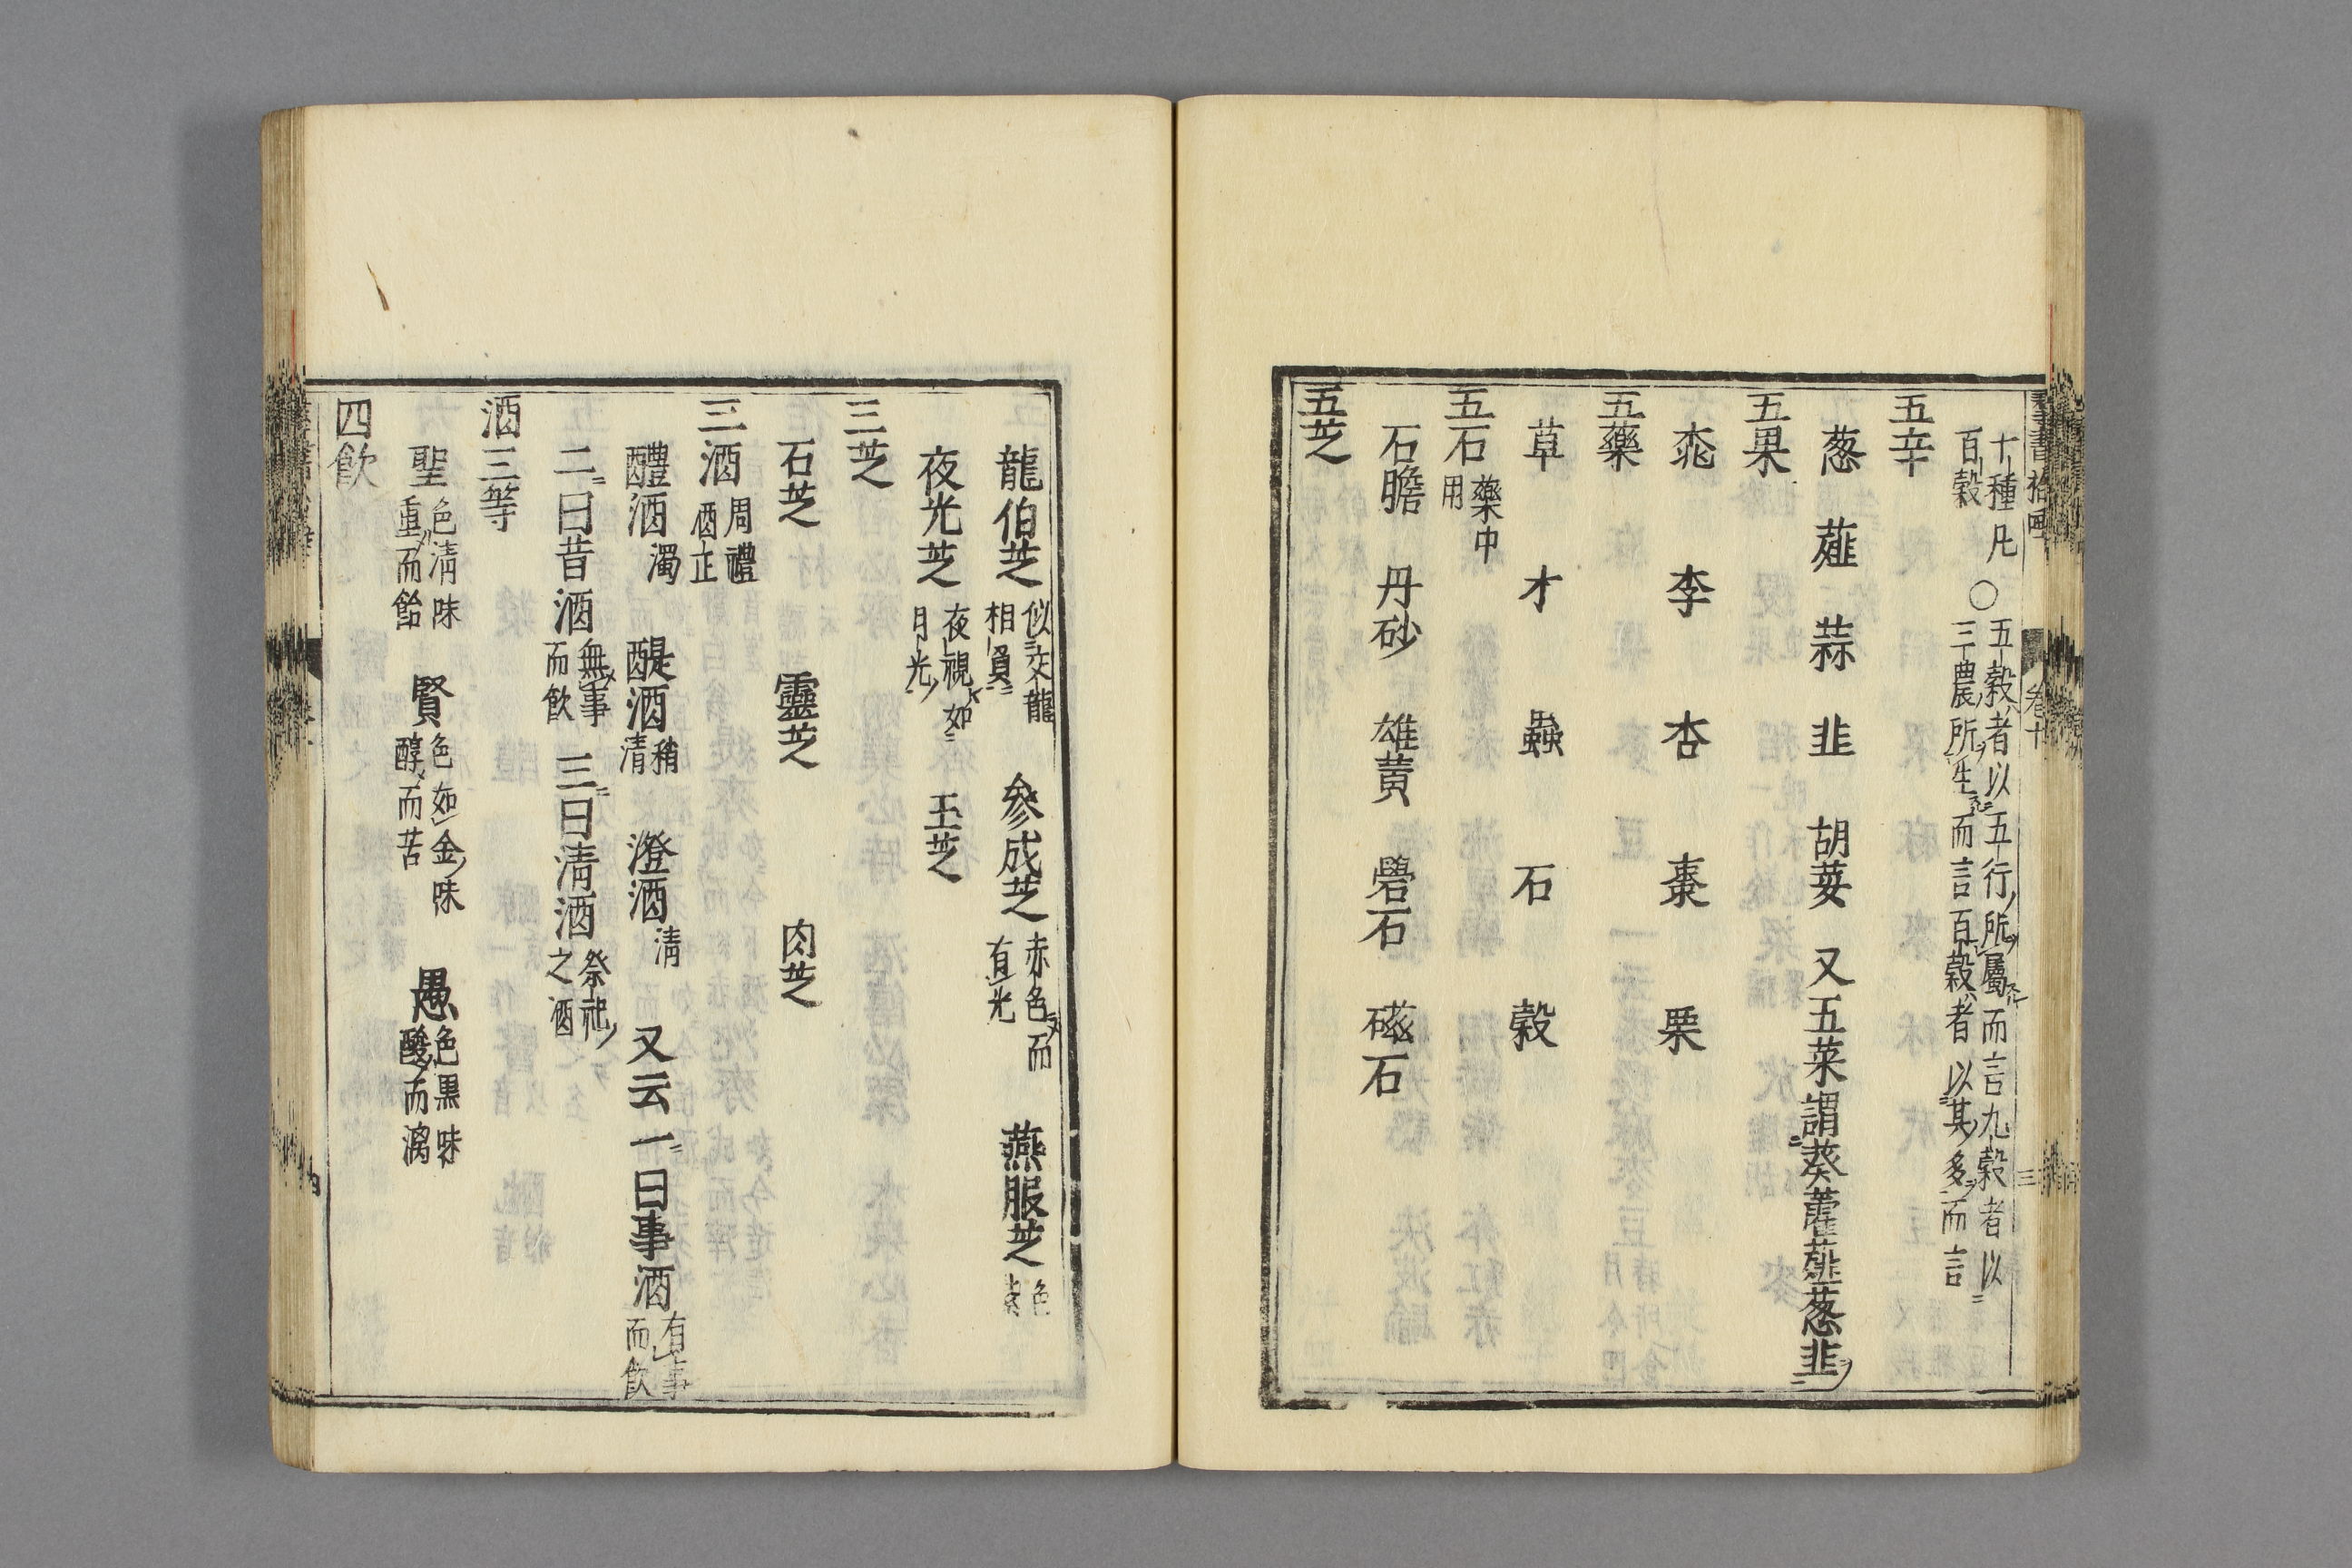 十種凡
百穀
○五穀者以五行所屬而言九穀者以
三農所生而言百穀者以其多而言
五辛
葱 薤 蒜 韭 胡荽 又五菜謂葵藿薤葱韭
五果
桃 李 杏 棗 栗
五藥
草 才 蟲 石 穀
五石 藥中用
石膽 丹砂 雄黄 礜石 磁石
五芝
卷十
三
龍伯芝 似交龍相負 參成芝 赤色而有光 燕服芝 色紫
夜光芝 夜視如月光 玉芝
三芝
石芝 靈芝 肉芝
三酒 周禮酒正
醴酒 濁 醍酒 稍清 澄酒 清 又云一曰事酒 有事而飲
二曰昔酒 無事而飲 三曰清酒 祭祀之酒
酒三等
聖 色清味重而飴 賢 色如金味醇而苦 愚 色黒味酸而漓
四飲